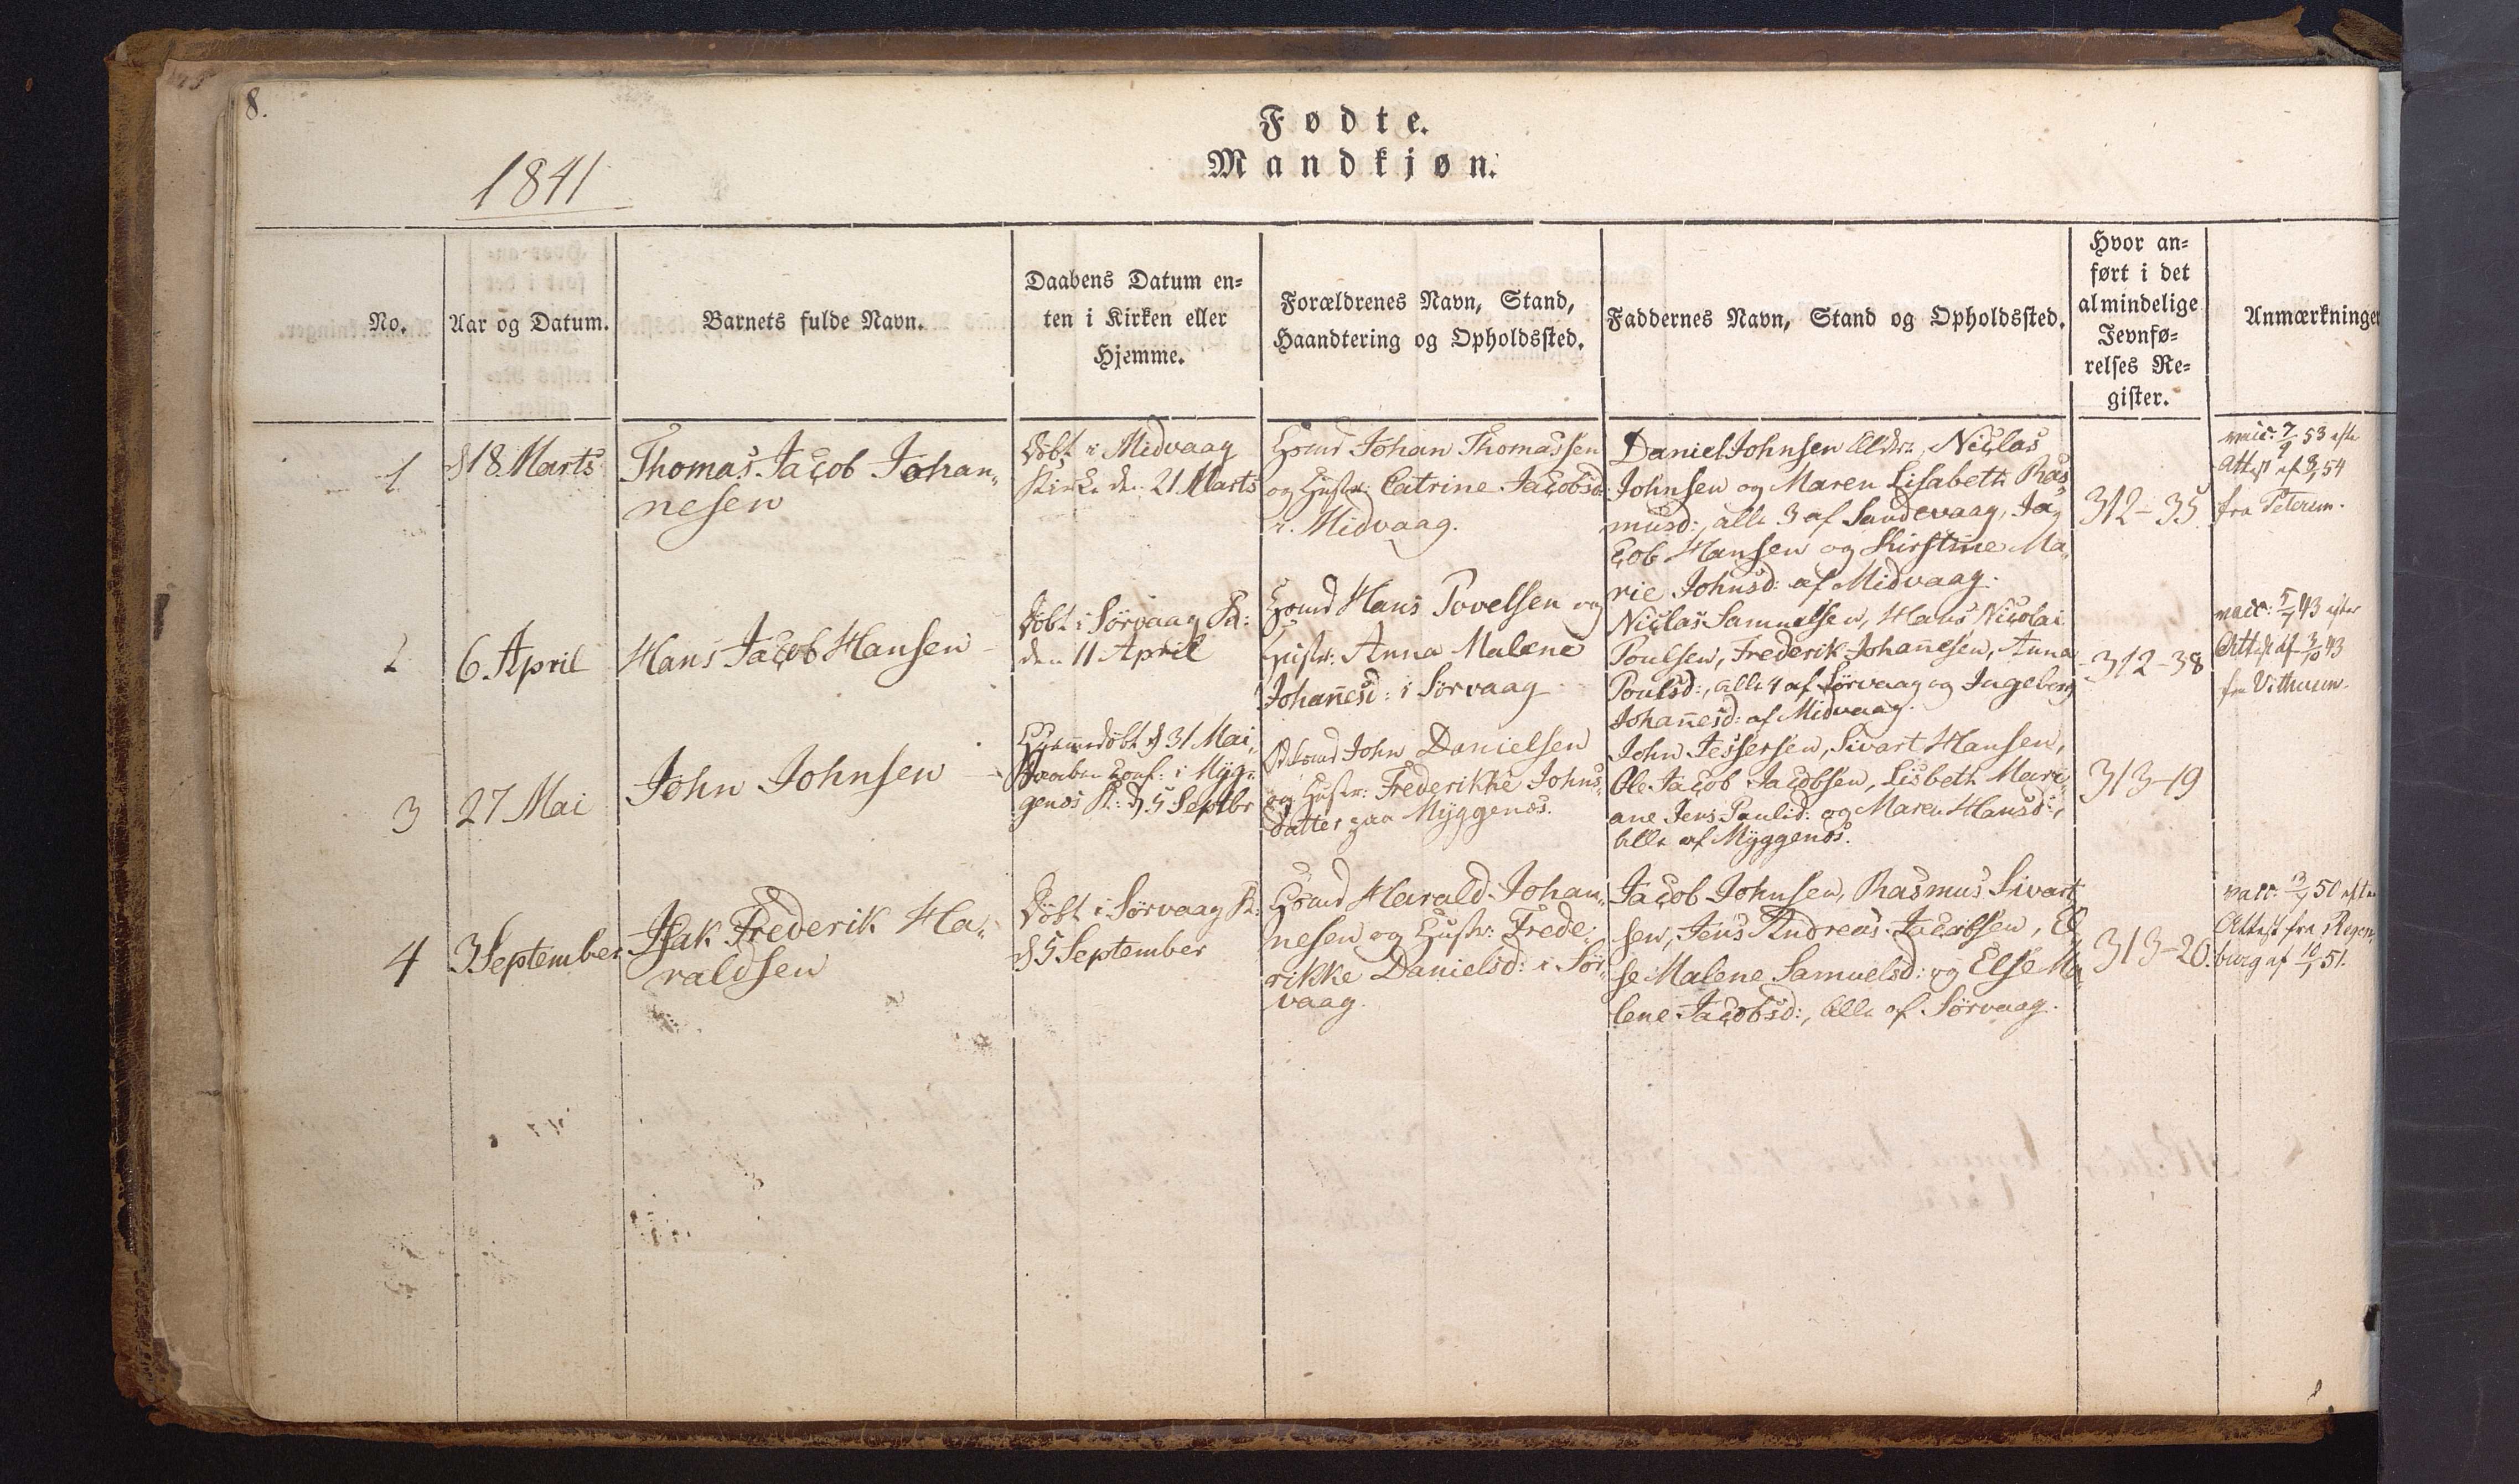 8.
Fødte.
Mandkjøn.
1841
No.
Aar og Datum.
Barnets fulde Navn.
Daabens Datum en-
ten i Kirken eller
Hjemme.
Forældrenes Navn, Stand,
Haandtering og Opholdssted.
Faddernes Navn, Stand og Opholdssted.
Hvor an-
ført i det
almindelige
Jevnfø-
relses Re-
gister.
Anmærkninger
1
d 18 Marts
Thomas Jacob Johan-
nesen
Döbt i Midvaag
Kirke den 21 Marts
Gbmd Johan Thomassen
og Hustr: Catrine Jacobsd:
i Midvaag.
Daniel Johnsen Eldre, Niclas
Johnsen og Maren Lisabeth Ras-
musd:, alle 3 af Sandevaag, Ja-
cob Hansen og Kirstine Ma-
rie Johnsd: af Midvaag.
312-35
vacc: 7/9 53 efter
Attest af 3/1 54
fra Petersen.
2
6. April
Hans Jacob Hansen
Döbt i Sörvaag K:
den 11 April
Gbmd Hans Povelsen og
Hustr: Anna Malene
Johan̄esd: i Sörvaag
Niclas Samuelsen, Hans Nicolai
Poulsen, Frederik Johan̄esen, Anna
Poulsd:, alle 4 af Sörvaag og Ingeborg
Johan̄esd: af Midvaag.
312-38
vacc: 5/7 43 efter
Attest af 3/10 43
fra
3
27 Mai
John Johnsen
Hjem̄edöbt d 31 Mai,
Daaben conf: i Myg-
genæs K: d 5 Septbr
John Danielsen
og Hustr: Frederikke Johns-
datter paa Myggenæs.
John Jessersen, Sivart Hansen,
Ole Jacob Jacobsen, Lisbeth Mari-
ane Jens Paulsd: og Maren Hansd:,
alle af Myggenæs.
313-19
4
3 September
Isak Frederik Ha-
raldsen
Döbt i Sörvaag K:
d 5 September
Gbmd Harald Johan-
nesen og Hustr: Frede-
rikke Danielsd: i Sör-
vaag.
Jacob Johnsen, Rasmus Sivart-
sen, Jens Andreas Jacobsen, El-
se Malene Samuelsd: og Else Ma-
lene Jacobsd:, alle af Sörvaag.
313-20.
vacc: 50 efter
Attest fra Regen-
burg af 10/1 51.